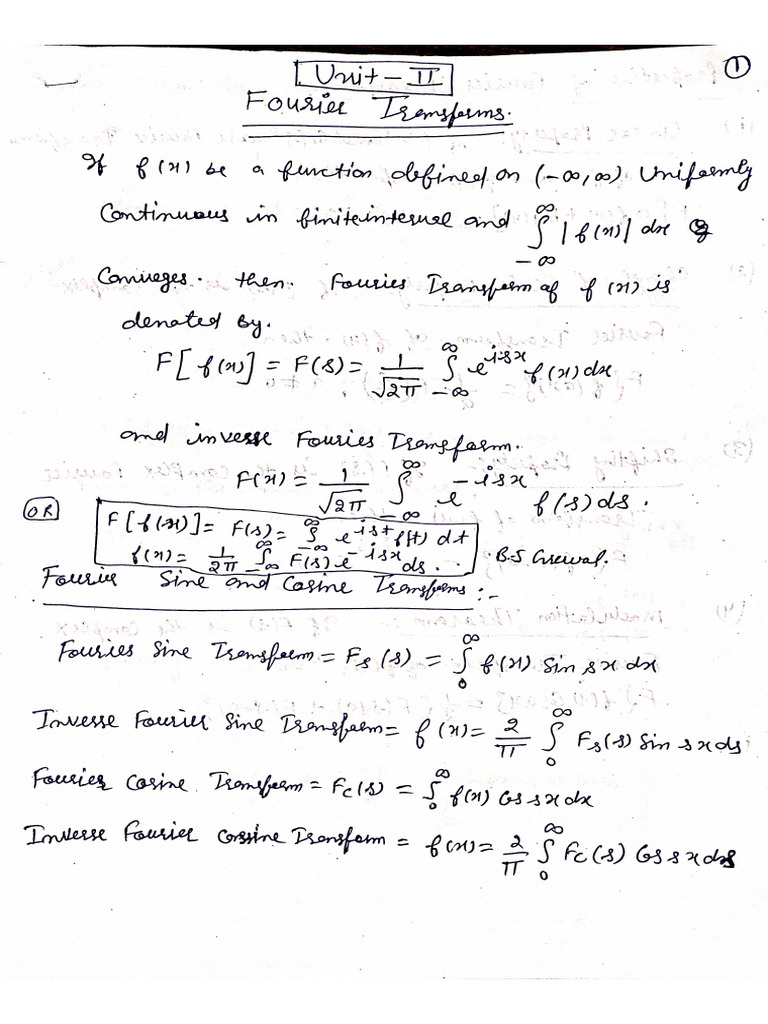 ①
Unit - II
Fourier Transforms.
If f(x) be a function, defined on (-∞, ∞) Uniformly
Continuous in finite interval and ∫_{-∞}^{∞} |f(x)| dx
Converges. then. Fourier Transform of f(x) is
denoted by.
F[f(x)] = F(s) = 1/√2π ∫_{-∞}^{∞} e^{isx} f(x) dx
and inverse Fourier Transform.
F(x) = 1/√2π ∫_{-∞}^{∞} e^{-isx} f(s) ds.
OR F[f(x)] = F(s) = ∫_{-∞}^{∞} e^{ist} f(t) dt
f(x) = 1/2π ∫_{-∞}^{∞} F(s) e^{-isx} ds... B.S Grewal.
Fourier Sine and Cosine Transforms :-
Fourier Sine Transform = F_s(s) = ∫_0^∞ f(x) Sin sx dx
Inverse Fourier Sine Transform = f(x) = 2/π ∫_0^∞ F_s(s) Sin sx ds
Fourier Cosine Transform = F_c(s) = ∫_0^∞ f(x) Cos sx dx
Inverse Fourier Cosine Transform = f(x) = 2/π ∫_0^∞ F_c(s) Cos sx ds